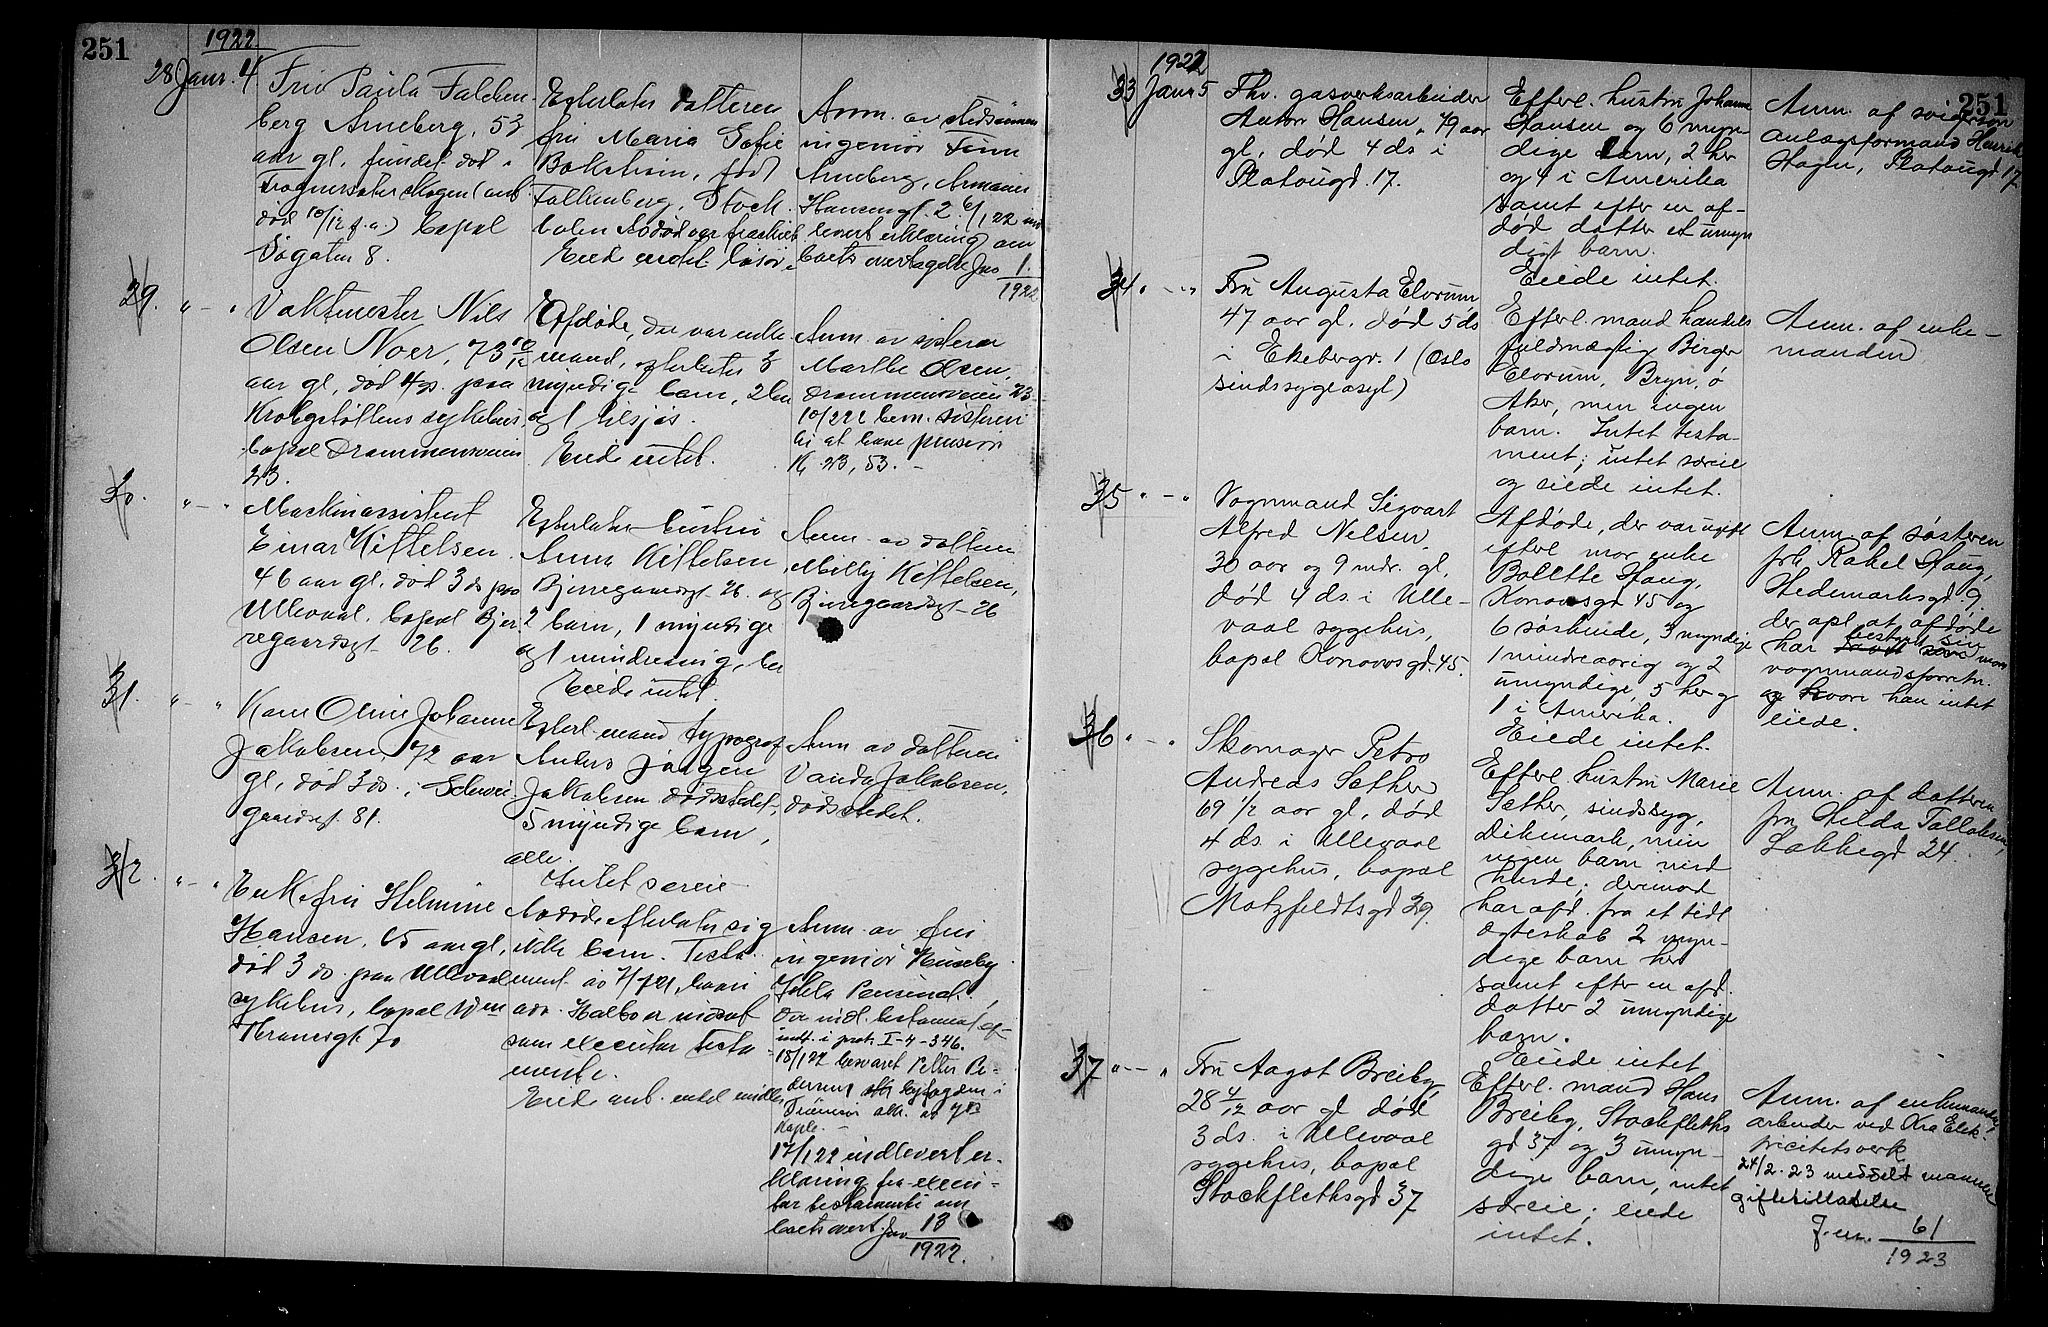 251
1922
28 Janr. 4.
Fru Paula Falken-
berg Arneberg, 53
aar gl. fundet død i
Frognersæterskogen (anb.
død 10/12 f.a.) bopal
8.
Efterlater datteren
fru Maria Sofie
født
Falkenberg, Stock-
holm. Avdøde var fraskilt
Eiede
Anm. av
ingeniør Finn
Arneberg,
Hansensgt. 2. 6/1 22 ind-
levert erklæring om
boets overtagelse Jno 1
1922
29. " - "
Vaktmester Nils
Olsen Noer, 73 10/12
aar gl, død 4 ds. paa
Krohgstøttens sykehus,
bopal Drammensveien
23.
Afdøde, der var enke
mand, efterlater 3
myndige barn, 2 her
og 1
Eiede intet.
Anm. av søsteren
Marthe Olsen,
Drammensveien 23
10/2 22 bem. søsteren
at have pension
K. 23, 53. -
30. " - "
Maskinassistent
Einar Kittelsen.
46 aar gl. død 3 ds paa
Ullevaal, bopal Bjer-
regaardsgt. 26.
Efterlater hustru
Anna Kittelsen,
Bjerregaardsgt. 26. og
2 barn, 1 myndige
og 1 mindreaarig, her
Eiede intet.
Anm. av datteren
Milly Kittelsen,
Bjerregaardsgt. 26
31. " - "
Karen Oline Johanne
Jakobsen, 72 aar
gl, død 3 ds. i Schwei-
gaardsgt. 81.
Efterl. mand typograf
Anders Jørgen
Jakobsen dødsstedet,
5 myndige barn,
alle.
Intet særeie
Anm. av datteren
Vanda Jakobsen,
dødsstedet.
32. " - "
Enkefru Helmine
Hansen, 65 aar gl,
død 3 ds. paa Ullevaal
sykehus, bopal
70
Avdøde efterlater sig
ikke barn. Testa-
ment av hvori
adv. er indsat
som executor testa-
mente.
Eiede anb. intet midler
Anm. av fru
ingeniør Huseby
der indl. testament
indf. i prot. I-4-346.
18/1 22 besvaret Petter Pe-
dersens
17/1 22 indlevert er-
klæring fra execu-
tor testamenti om
boets overt. Jno 13
1922.
1922
33 Janr 5
Fhv. gasverksarbeider
Anton Hansen, 79 aar
gl, død 4 ds i
Platougd. 17.
Efterl. hustru Johanne
Hansen og 6 myn-
dige barn, 2 her
og 4 i Amerika
samt efter en af-
død datter et umyn
digt barn.
Eiede intet.
251
Anm. af svigersøn
anlægsformand Henrik
Hagen, Platougd. 17
34 " - "
Fru Augusta Elvrum,
47 aar gl. død 5 ds
i Ekebergv. 1 (Oslo
sindssygeasyl)
Efterl. mand handels
fuldmægtig Birger
Elvrum, Bryn, ø
Aker, men ingen
barn. Intet testa-
ment; intet særeie
og eiede intet.
Anm. af enke-
manden
35 " - "
Vognmand Sigvart
Alfred Nelsen
30 aar og 9 mdr. gl,
død 4 ds. i Ulle-
vaal sygehus,
bopal Konowsgd. 45.
Afdøde, der var ugift
efterl mor enke
Bolette Haug,
Konowsgd 45 og
6 søskende, 3 myndige
1 mindreaarig og 2
umyndige, 5 her og
1 i Amerika.
Eiede intet.
Anm. af søsteren
frk. Rakel Haug,
Hedemarksgd 9.
der opl. at afdøde
har bestyret sin mors
vognmandsforretn.
og hvori han intet
eiede.
36 " - "
Skomager Petro
Andreas Sether
69 1/2 aar gl, død
4 ds. i Ullevaal
sygehus, bopal
Motzfeldtsgd 29.
Efterl. hustru Marie
Sether, sindssyg,
Dikemark, men
ingen barn med
hende; derimod
har afd. fra et tidl
ægteskab 2 myn-
dige barn her
samt efter en afd.
datter 2 umyndige
barn.
Eiede intet
Anm. af datteren
fru Hilda Tollefsen,
Lakkegd 24.
37 " - "
Fru Aagot Breiby
28 4/12 aar gl død
3 ds. i Ullevaal
sygehus, bopal
Stockflethsgd 37
Efterl. mand Hans
Breiby, Stockfleths
gd 37 og 3 umyn-
dige barn, intet
særeie; eiede
intet.
Anm. af enkemanden,
arbeider ved Kra Elek-
tricitetsverk
24/2-23 meddelt manden
giftetilladelse
J.nr. 61
1923